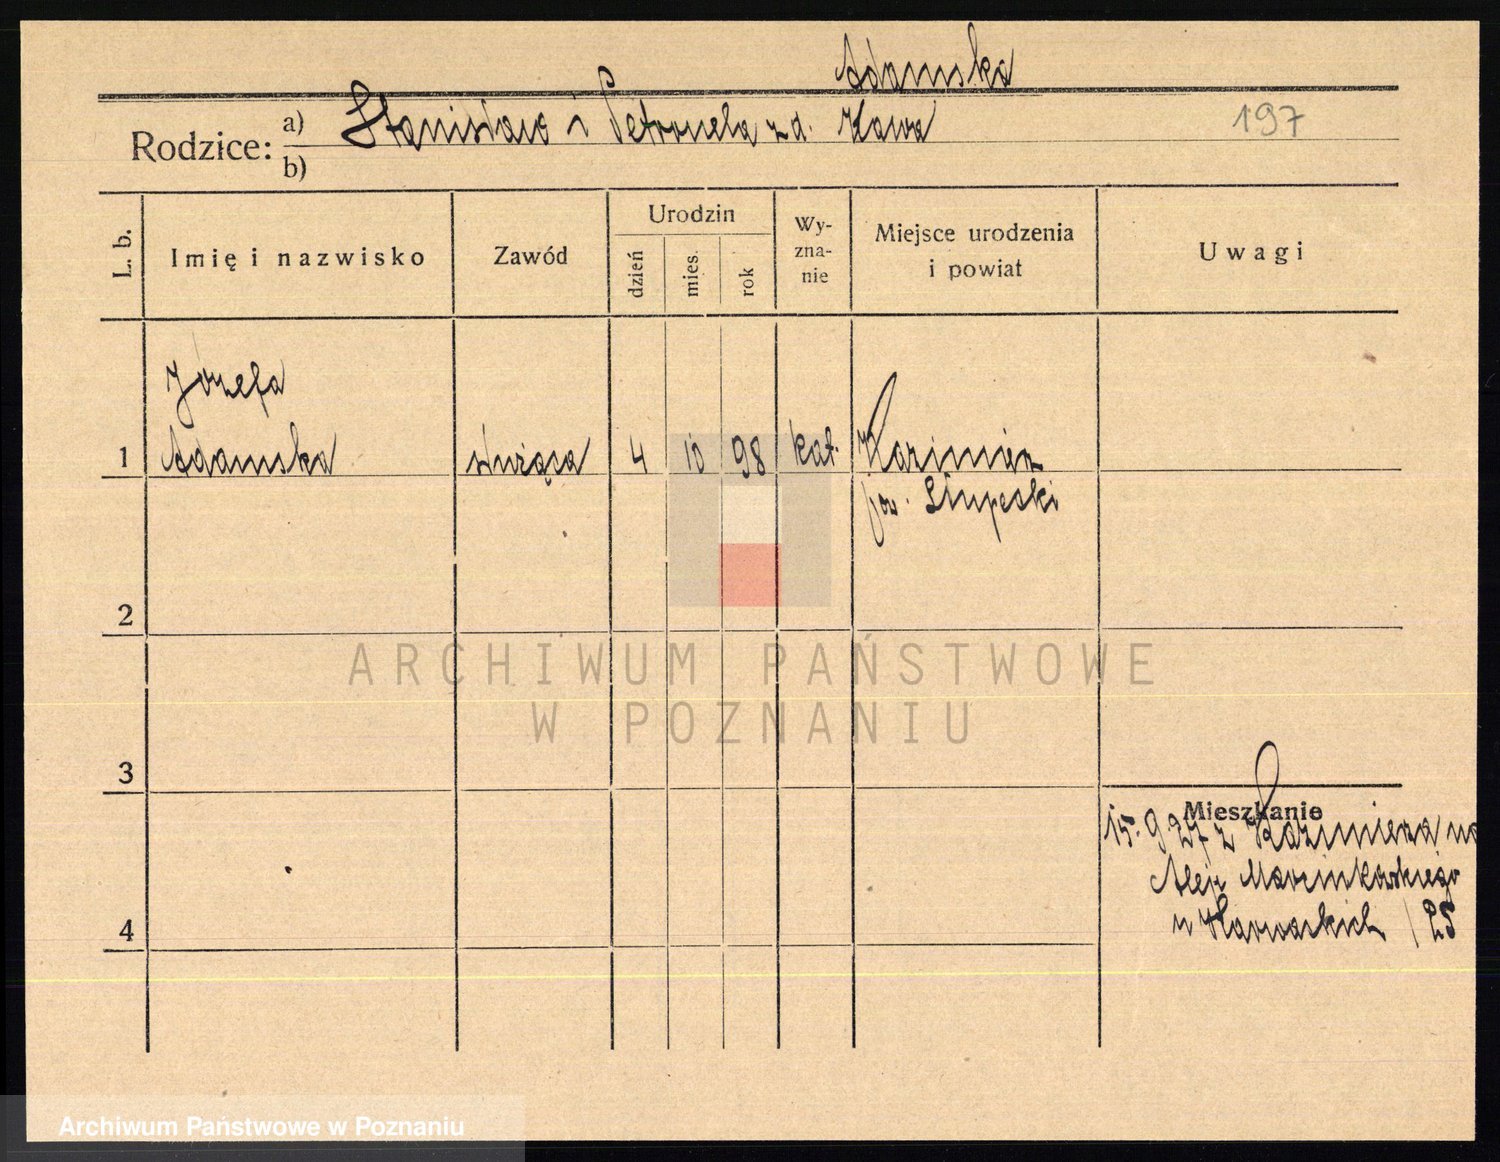 Adamska
Rodzice: a) Stanisław i Petronela z d. Kawa
197
b)
L. b.
Imię i nazwisko
Zawód
Urodzin
dzień
mies.
rok
Wy-
zna-
nie
Miejsce urodzenia
i powiat
Uwagi
Józefa
1 Adamska służąca 4 10 98 kat. Kazimierz
pow. Słupecki
2
ARCHIWUM PAŃSTWOWE
W POZNANIU
3
Mieszkanie
15. 9 27 z Kazimierza na
Aleje Marcinkowskiego
u /25
4
Archiwum Państwowe w Poznaniu